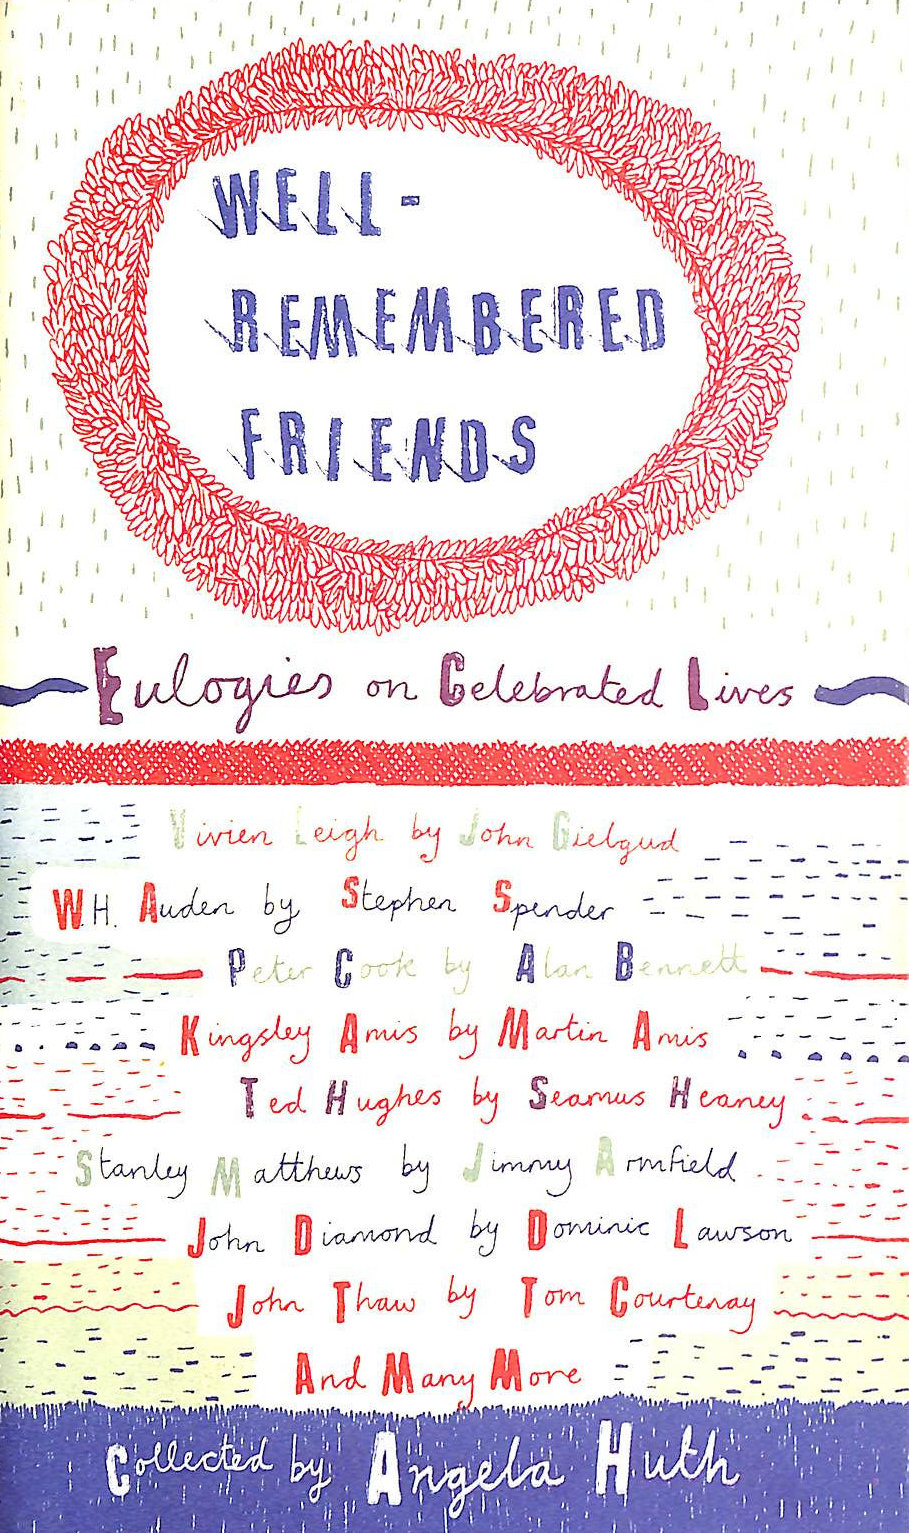 WELL-
REMEMBERED
FRIENDS
Eulogies on Celebrated Lives
Vivien Leigh by John Gielgud
W.H. Auden by Stephen Spender
Peter Cook by Alan Bennett
Kingsley Amis by Martin Amis
Ted Hughes by Seamus Heaney
Stanley Matthews by Jimmy Armfield
John Diamond by Dominic Lawson
John Thaw by Tom Courtenay
And Many More
Collected by Angela Huth